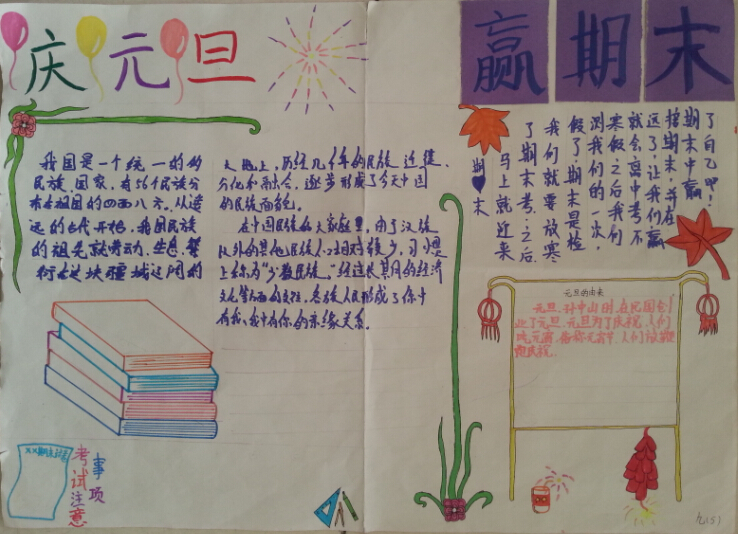 庆元旦
赢期末
我国是一个统一的的
民族国家,有56个民族分
布在祖国的四面八方。从遥
远的古代开始,我国民族
的祖先就劳动、生息、繁
衍在这块疆域辽阔的
大地上,历经几千年的民族迁徙、
分化和融合,逐步形成了今天中国
的民族面貌。
在中国民族的大家庭里,由于汉族
以外的其他民族人口相对较少,习惯
上称为"少数民族"。经过长期的经济
文化等方面的交往,各族人民形成了你中
有我,我中有你的亲缘关系。
期♥末
马上就近来
了期末考,之后
我们就要放寒
假了,期末是检
测我们的一次,
寒假之后我们
就会离中考不
远了,让我们赢
期末,并在
期末中赢
了自己
元旦的由来
元旦,孙中山时,在民国创
了元旦,元旦为了庆祝,人们
人们
考试注意
事项